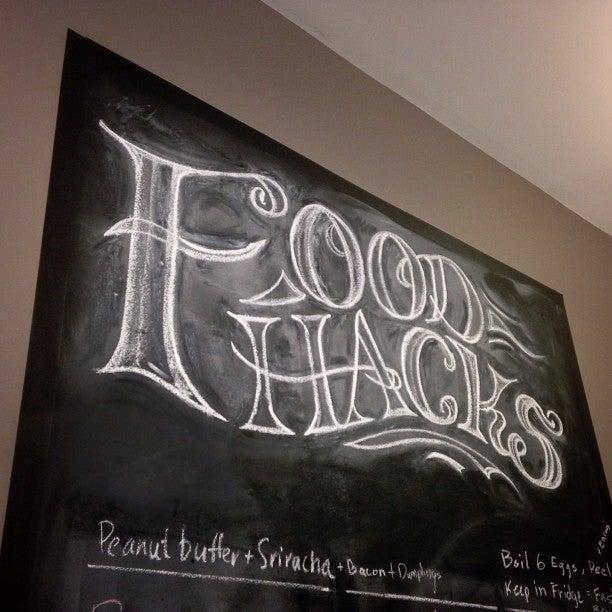 FOOD
HACKS
Peanut butter + Sriracha + Bacon + Dumplings
Boil 6 Eggs, Peel
Keep in Fridge =